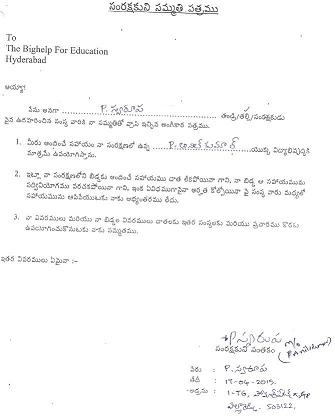 సంరక్షకుని సమ్మతి పత్రము
To
The Bighelp For Education
Hyderabad
అయ్యా!
నేను అనగా P. స్వరూప తండ్రి/తల్లి/సంరక్షకుడు
పైన ఉదహరించిన సంస్థ వారికి నా సమ్మతితో వ్రాసి ఇచ్చిన అంగీకార పత్రము.
1. మీరు అందించే సహాయం నా సంరక్షణలో ఉన్న P. అనిల్ కుమార్ యొక్క విద్యాభివృద్ధికి
మాత్రమే ఉపయోగిస్తాను.
2. ఇట్లా నా సంరక్షణలోని బిడ్డకు అందించే సహాయము చాత లేకపోయినా గాని, నా బిడ్డ ఆ సహాయమును
సద్వినియోగము పరచకపోయినా గాని, ఇంక ఏవిధముగానైనా అర్హత కోల్పోయినా పై సంస్థ వారు మధ్యలో
సహాయమును ఆపివేయుటకు నాకు అభ్యంతరము లేదు.
3. నా వివరములు మరియు నా బిడ్డల వివరములు దాతలకు ఇతర సంస్థలకు మరియు ప్రచారము కొరకు
ఉపయోగించుకొనుటకు నాకు సమ్మతము.
ఇతర వివరములు ఏమైనా :-
P స్వరూప
సంరక్షకుని సంతకం
పేరు : P. స్వరూప
తేదీ : 17-04-2015.
అడ్రసు : 1-76,
503122.